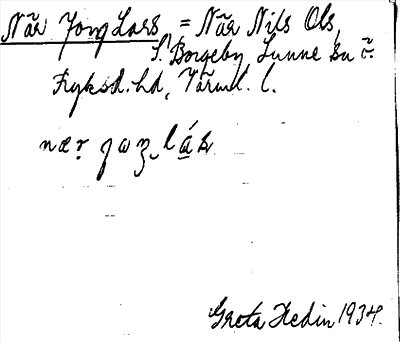 När Jong Lars = När Nils Ols,
S. Borgeby, Sunne sn
Fryksd. hd, Värml. l.
Greta Hedin 1934.